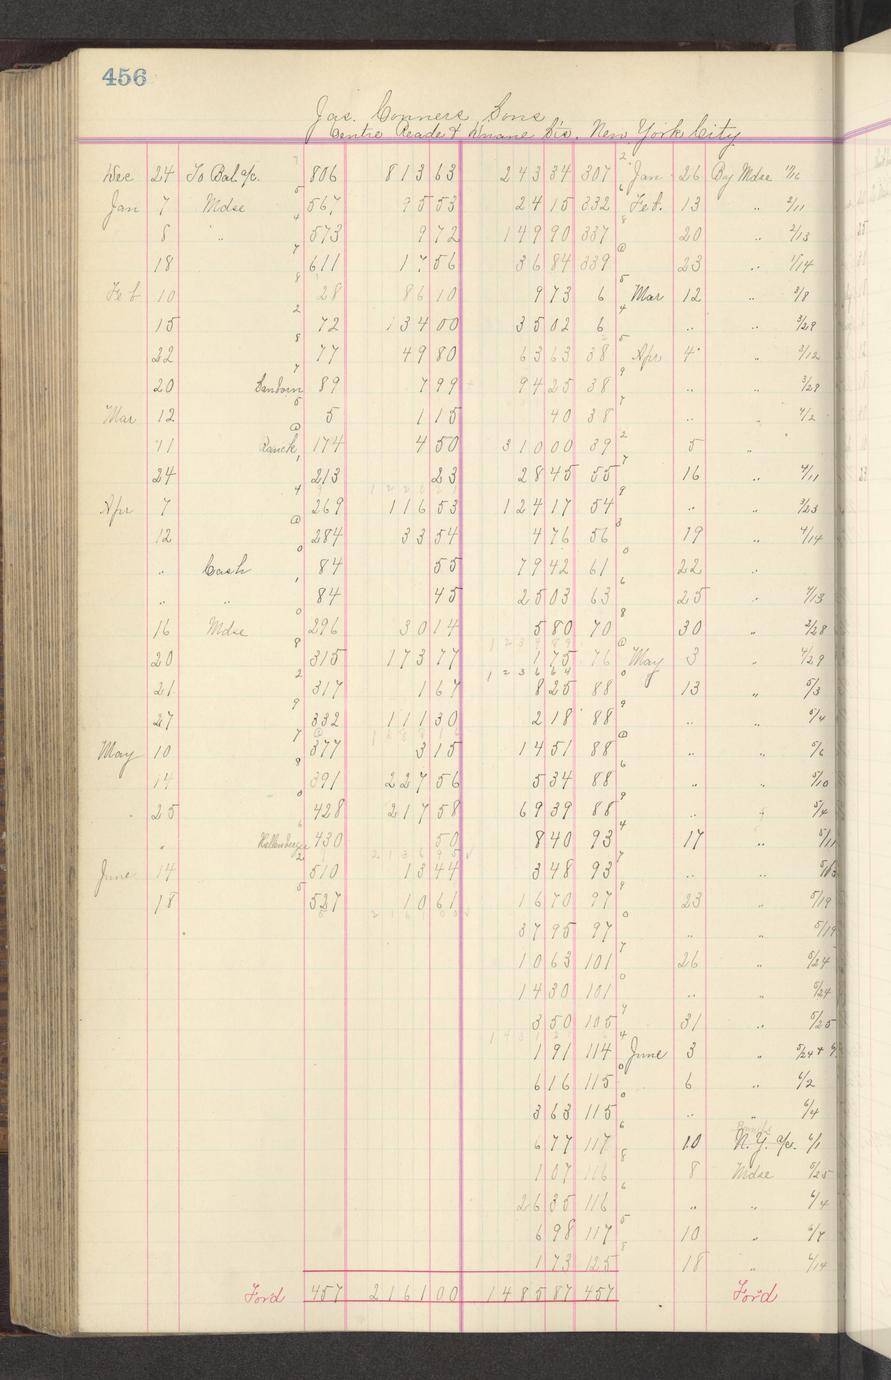 456
Jas. Conners Sons
Centre Reade & Duane Sts. New York City
Dec 24 To Bal a/c. 806 813 63 243 34 307 Jan 26 By Mdse 1/16
Jan 7 Mdse 567 95 53 24 15 332 Feb. 13 " 2/11
8 " 573 9 72 149 90 337 20 " 2/13
18 611 17 56 36 84 339 23 " 1/14
Feb 10 28 86 10 9 73 6 Mar 12 " 3/8
15 72 134 00 35 02 6 " " 3/29
22 77 49 80 63 63 38 Apr 4 " 3/12
20 Sanborn 89 7 99 94 25 38 " " 3/29
Mar 12 5 1 15 40 38 " " 4/2
11 Ranck 174 4 50 310 00 39 5 " "
24 213 23 28 45 55 16 " 4/11
Apr 7 269 116 53 124 17 54 " " 3/23
12 284 33 54 4 76 56 19 " 4/14
" Cash 84 55 79 42 61 22 "
" " 84 45 25 03 63 25 " 4/13
16 Mdse 296 30 14 5 80 70 30 " 2/28
20 315 173 77 1 75 76 May 3 " 4/29
21 317 1 67 8 25 88 13 " 5/3
27 332 111 30 2 18 88 " " 5/4
May 10 377 3 15 14 51 88 " " 5/6
14 391 227 56 5 34 88 " " 5/10
" 25 428 217 58 69 39 88 " " 5/4
" 430 50 8 40 93 17 " 5/11
June 14 510 13 44 3 48 93 " " 5/13
18 527 10 61 16 70 97 23 " 5/19
37 95 97 " " 5/19
10 63 101 26 " 5/24
14 30 101 " " 5/24
3 50 105 31 " 5/25
1 91 114 June 3 " 5/24 +
6 16 115 6 " 6/2
3 63 115 " " 6/4
6 77 117 10 N.Y. a/c. 6/1
1 07 116 8 Mdse 5/25
26 35 116 " " 6/4
6 98 117 10 " 6/7
1 73 125 18 " 6/14
For'd 457 2161 00 1485 87 457 For'd